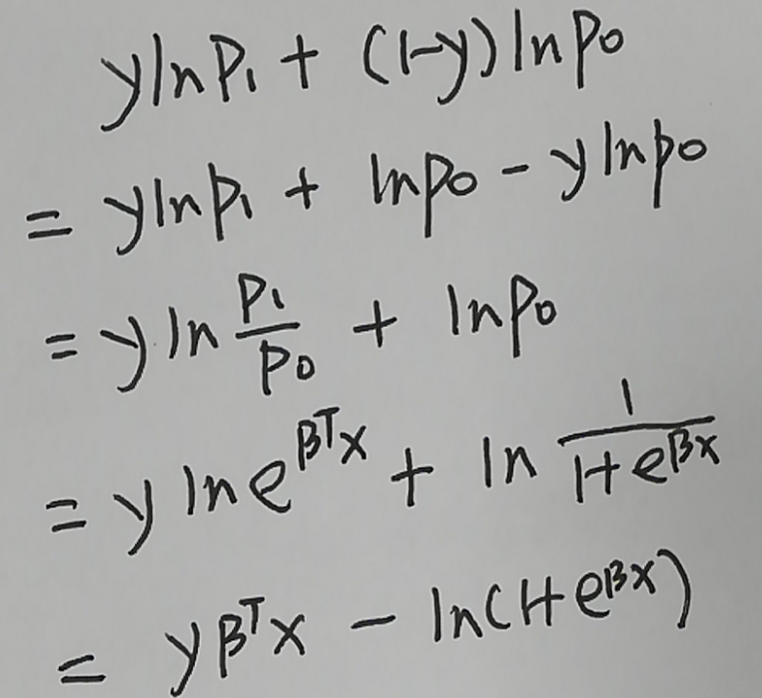 yln p₁ + (1-y) ln p₀
= yln p₁ + ln p₀ - y ln p₀
= y ln \frac{p₁}{p₀} + ln p₀
= y ln e^{β^T x} + ln \frac{1}{1+e^{βx}}
= y β^T x - ln(1+e^{βx})